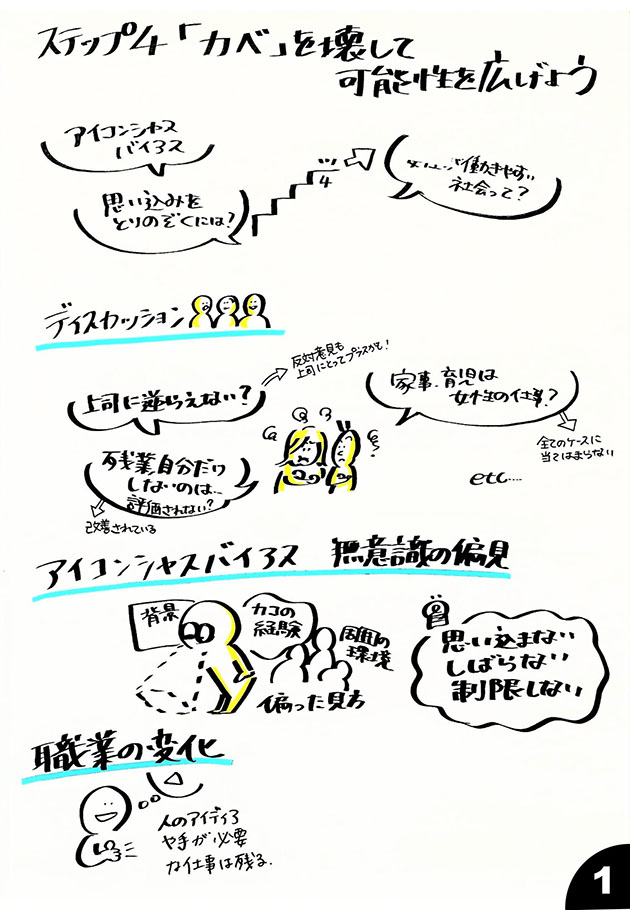 ステップ4「カベ」を壊して
可能性を広げよう
アイコンシャス
バイアス
思い込みを
とりのぞくには?
4
が働きやすい
社会って?
ディスカッション
反対意見も
上司にとってプラスかも!
上司に逆らえない?
家事・育児は
女性の仕事?
全てのケースに
当てはまらない
残業、自分だけ
しないのは…
評価されない?
改善されている
etc…
アイコンシャスバイアス 無意識の偏見
背景
カコの
経験
周囲の
環境
偏った見方
思い込まない
しばらない
制限しない
職業の変化
人のアイディア
や手が必要
な仕事は残る.
1